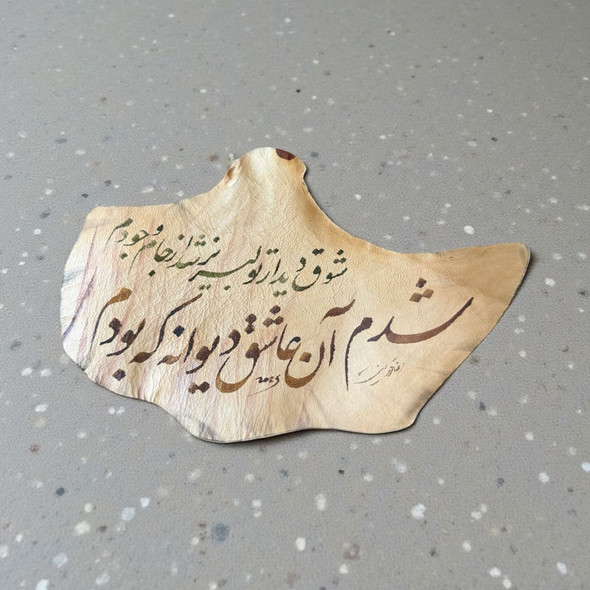 شوق دیدار تو لبریز شد از جام وجودم
شدم آن عاشق دیوانه که بودم
2025